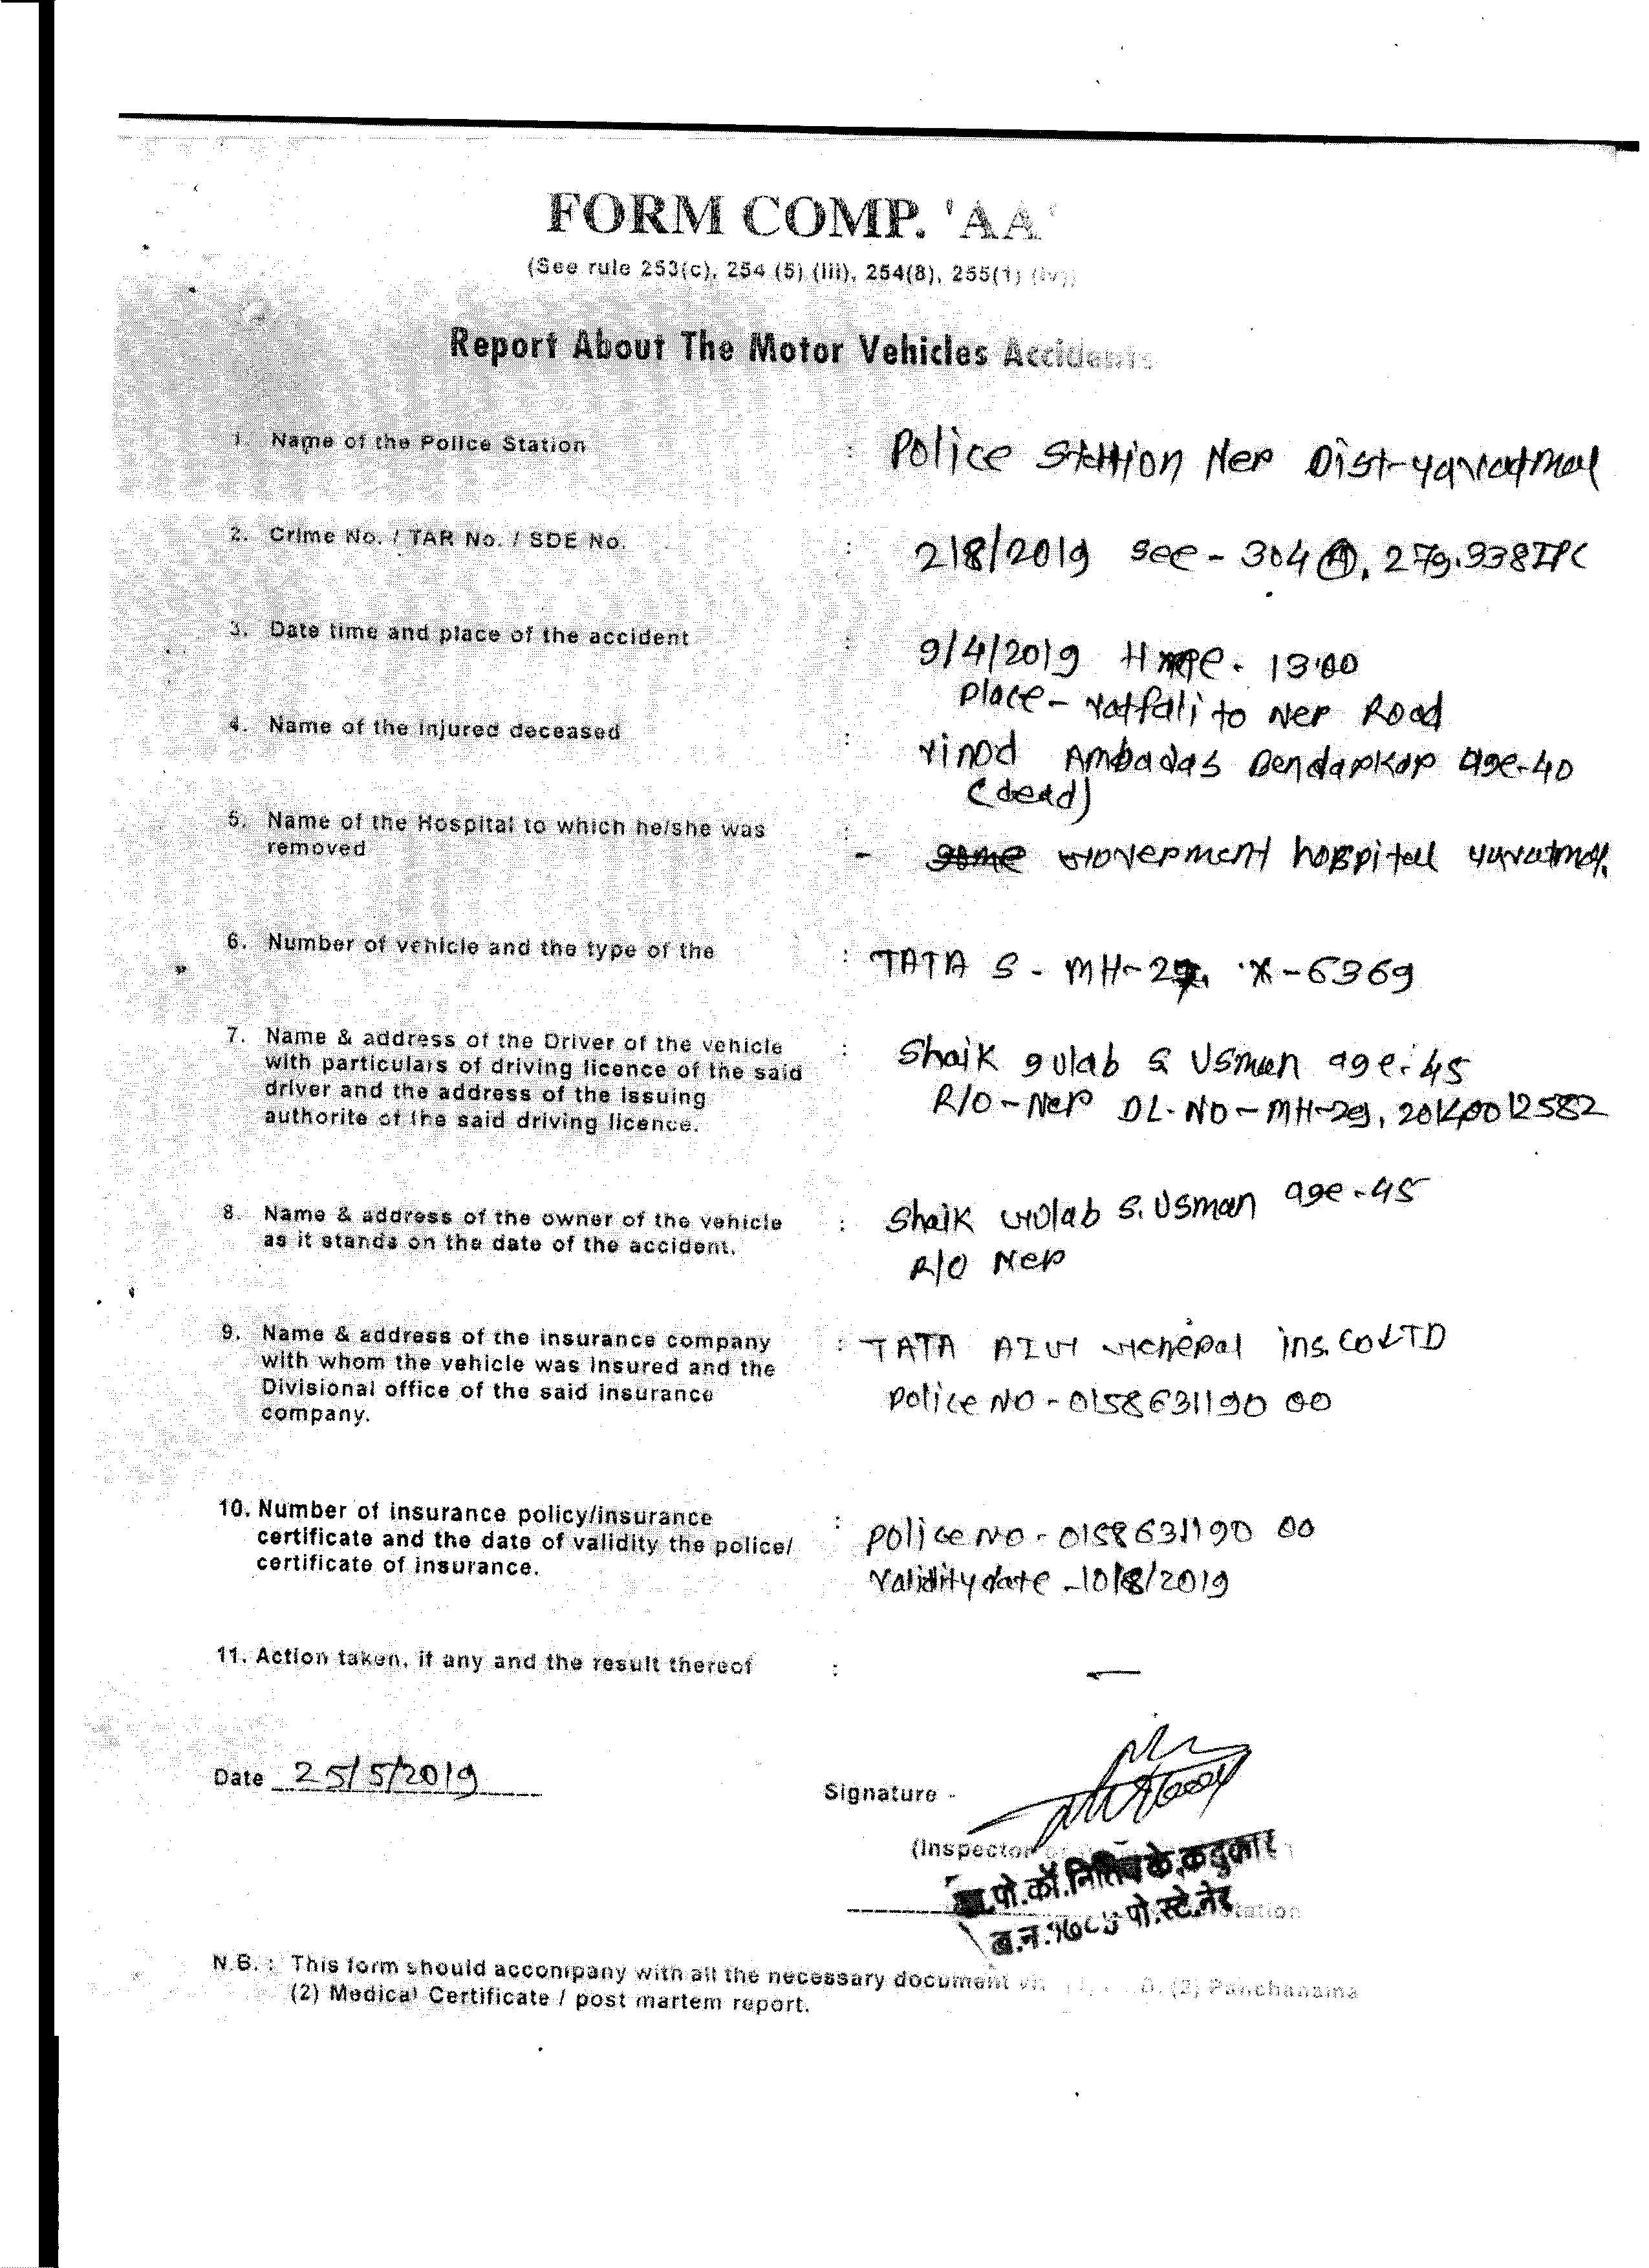 FORM COMP. 'AA'
(See rule 253(c), 254 (5) (iii), 254(8), 255(1) (iv))
Report About The Motor Vehicles Accidents
1. Name of the Police Station : Police Station Ner Dist-yavatmal
2. Crime No. / TAR No. / SDE No. : 218/2019 sec - 304 (A), 279, 338 IPC
3. Date time and place of the accident : 9/4/2019 13:00
Place - vatfali to Ner Road
4. Name of the injured deceased : vinod Ambadas Dendarkar age-40
(dead)
5. Name of the Hospital to which he/she was
removed - Government hospital yavatmal.
6. Number of vehicle and the type of the : TATA S - MH-29, X-6369
7. Name & address of the Driver of the vehicle
with particulars of driving licence of the said
driver and the address of the issuing
authorite of the said driving licence.
: Shaik gulab S Usman age-45
R/O-Ner DL-NO-MH-29, 20140012582
8. Name & address of the owner of the vehicle
as it stands on the date of the accident.
: Shaik Gulab S. Usman age-45
R/O Ner
9. Name & address of the insurance company
with whom the vehicle was insured and the
Divisional office of the said insurance
company.
: TATA AIG General ins. Co LTD
Police NO - 0158631190 00
10. Number of insurance policy/insurance
certificate and the date of validity the police/
certificate of insurance.
: Police NO - 0158631190 00
Validity date - 10/8/2019
11. Action taken, if any and the result thereof : —
Date 25/5/2019
Signature -
(Inspector
पो.कॉ. के.कदुकार
ब.न. पो.स्टे.नेर
Station
N.B. : This form should accompany with all the necessary document (2) Panchanama
(2) Medical Certificate / post martem report.